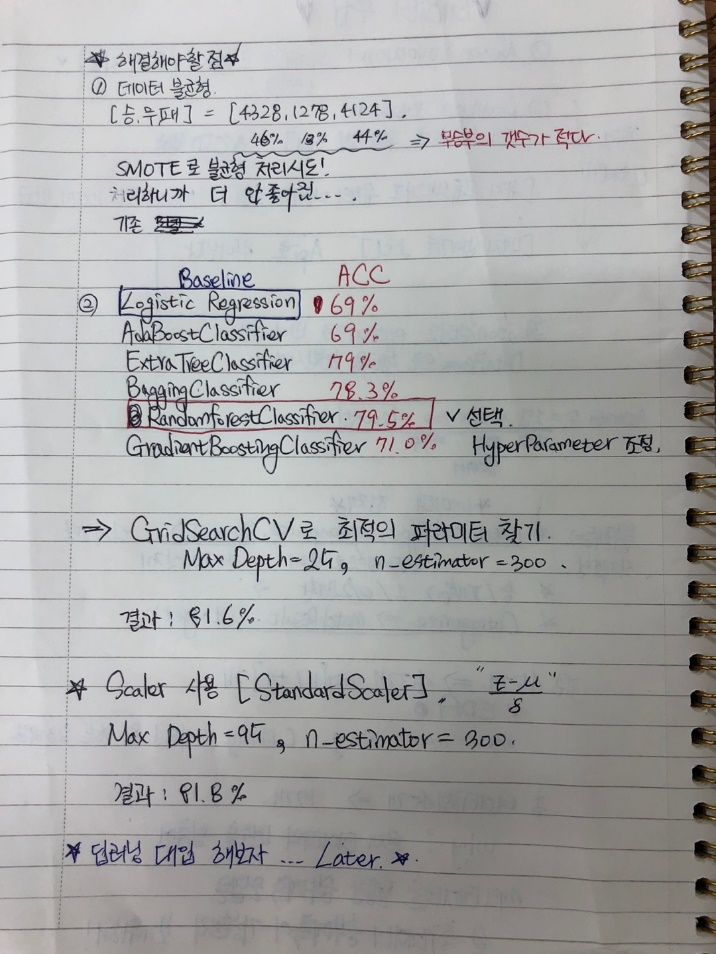 ★ 해결해야할 점★
① 데이터 불균형.
[승,무,패] = [4328,1278,4124].
46% 13% 44% ⇒ 무승부의 갯수가 적다.
SMOTE로 불균형 처리시도!
처리하니까 더 안좋아짐....
기존
Baseline ACC
② Logistic Regression 69%
AdaBoostClassifier 69%
ExtraTreeClassifier 79%
BaggingClassifier 78.3%
RandomforestClassifier. 79.5% ∨ 선택.
GradientBoostingClassifier 71.0% HyperParameter 조정.
⇒ GridSearchCV로 최적의 파라미터 찾기.
Max Depth=25, n-estimator=300.
결과: 81.6%
★ Scaler 사용 [StandardScaler]. "z-μ"
8
Max Depth=95, n-estimator=300.
결과: 81.8%
★ 딥러닝 대입 해보자 ... Later. ★.